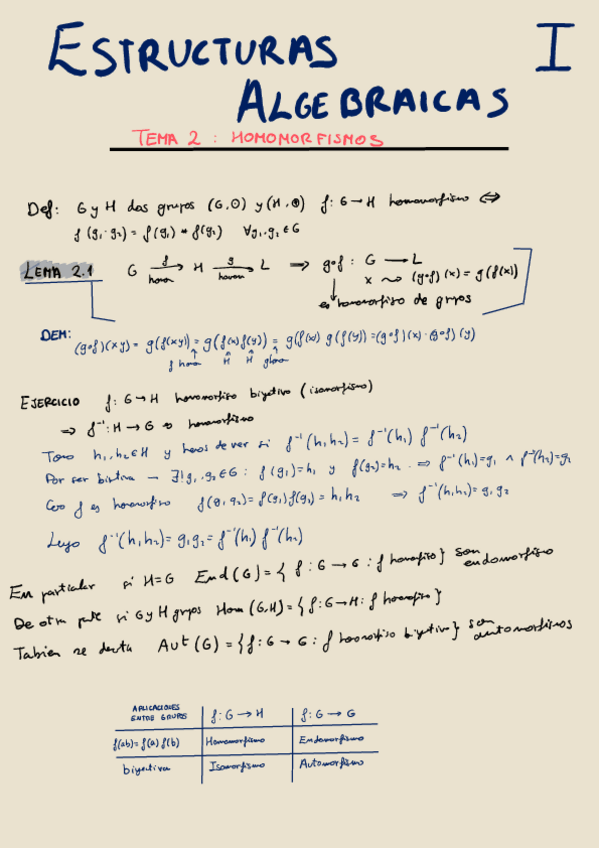 ESTRUCTURAS I
ALGEBRAICAS
TEMA 2 : HOMOMORFISMOS
Def: G y H dos grupos (G,⊙) y (H,⊛) f: G→H homomorfismo ⇔
f(g₁·g₂) = f(g₁) * f(g₂) ∀g₁,g₂∈G
LEMA 2.1 G →f homo H →g homo L ⇒ g∘f : G → L
x ⇝ (g∘f)(x) = g(f(x))
es homomorfismo de grupos
DEM:
(g∘f)(xy) = g(f(xy)) = g(f(x)f(y)) = g(f(x)) g(f(y)) = (g∘f)(x)·(g∘f)(y)
f homo H H g homo
EJERCICIO f: G→H homomorfismo biyectivo (isomorfismo)
⇒ f⁻¹: H→G es homomorfismo
Tomo h₁,h₂∈H y hemos de ver si f⁻¹(h₁h₂) = f⁻¹(h₁) f⁻¹(h₂)
Por ser biyectiva → ∃! g₁,g₂∈G : f(g₁)=h₁ y f(g₂)=h₂ ⇒ f⁻¹(h₁)=g₁ ∧ f⁻¹(h₂)=g₂
Como f es homomorfismo f(g₁g₂) = f(g₁)f(g₂) = h₁h₂ ⇒ f⁻¹(h₁h₂) = g₁g₂
Luego f⁻¹(h₁h₂) = g₁g₂ = f⁻¹(h₁) f⁻¹(h₂)
En particular si H=G End(G) = { f: G→G : f homomorfismo } son endomorfismo
De otra parte si G y H grupos Hom(G,H) = { f: G→H : f homomorfismo }
Tabien se denota Aut(G) = { f: G→G : f homomorfismo biyectivo } son automorfismos
APLICACIONES
ENTRE GRUPOS f: G→H f: G→G
f(ab)=f(a)f(b) Homomorfismo Endomorfismo
biyectiva Isomorfismo Automorfismo